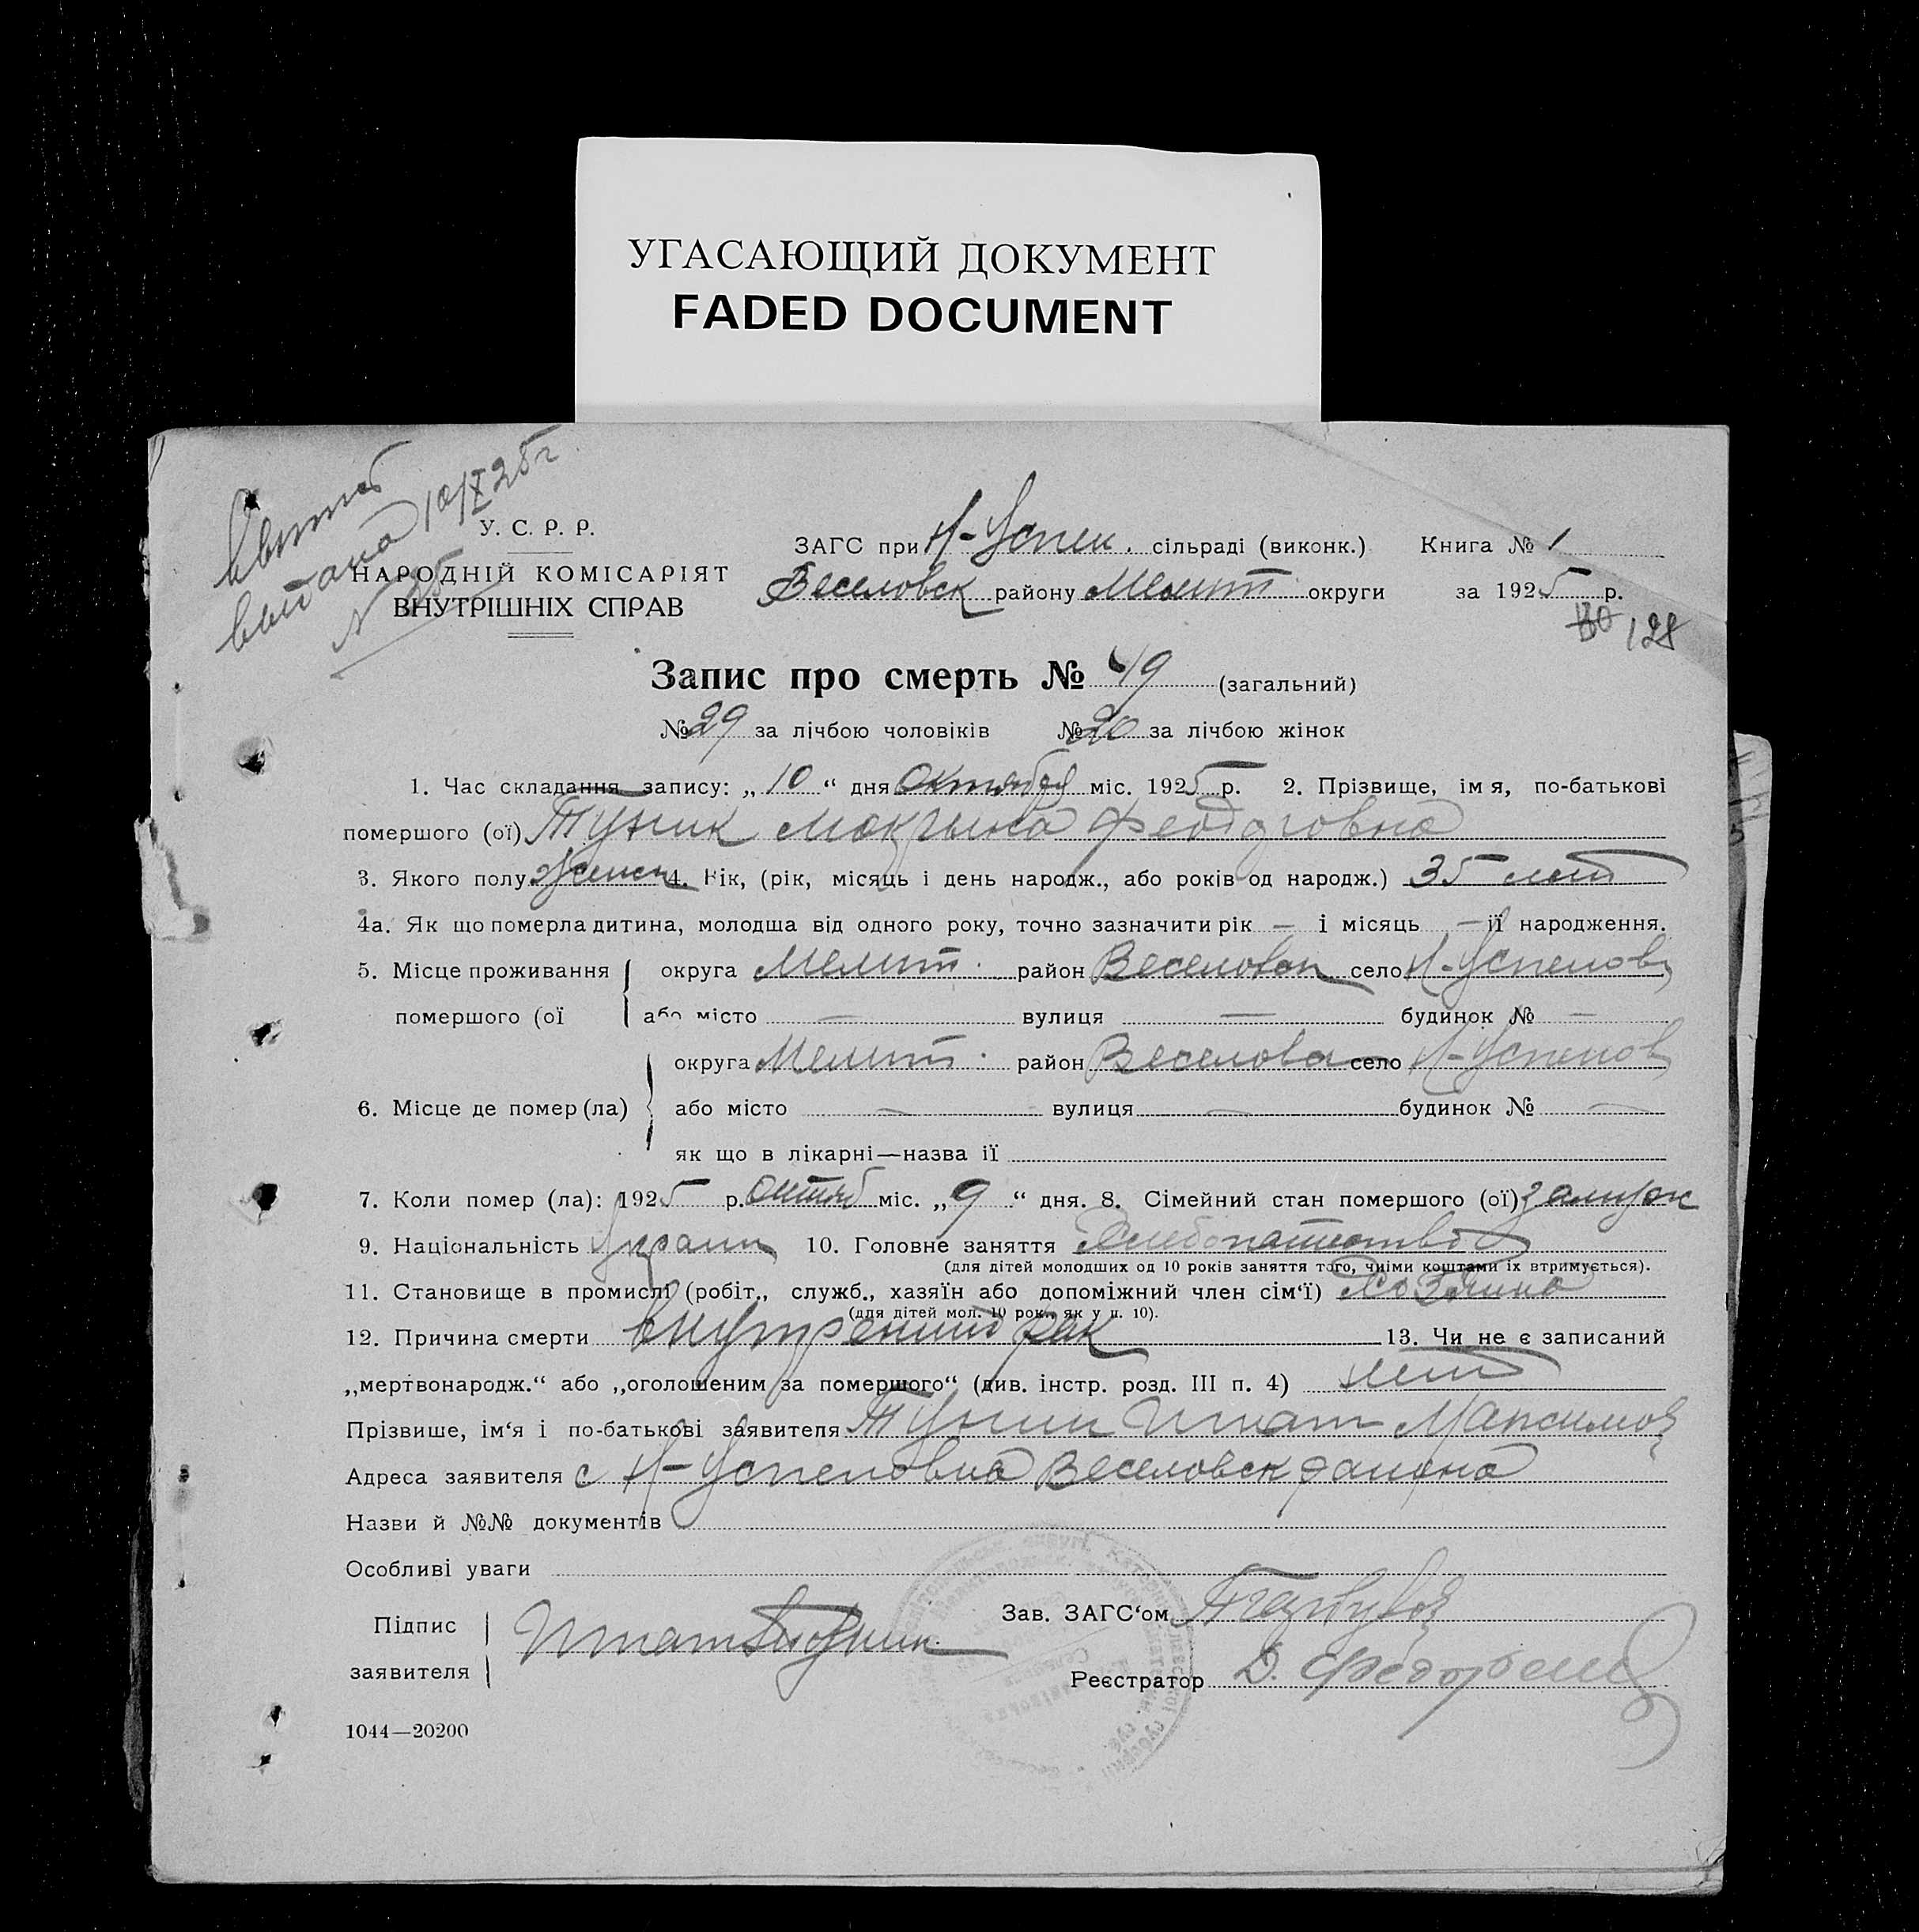 УГАСАЮЩИЙ ДОКУМЕНТ
FADED DOCUMENT
выдана 10/X 25 г
№ 35
У. С. Р. Р.
НАРОДНІЙ КОМІСАРІЯТ
ВНУТРІШНІХ СПРАВ
ЗАГС при Н-Успен. сільраді (виконк.) Книга № 1
Веселовск району Мелит. округи за 1925 р.
128
Запис про смерть № 49 (загальний)
№ 29 за лічбою чоловіків № 20 за лічбою жінок
1. Час складання запису: „ 10 “ дня октября міс. 1925 р. 2. Прізвище, імя, по-батькові
помершого (ої) Туник Макрина Феодровна
3. Якого полу женск 4. Вік, (рік, місяць і день народж., або років од народж.) 35 лет
4а. Як що померла дитина, молодша від одного року, точно зазначити рік — і місяць — ії народження.
5. Місце проживання округа Мелит. район Веселовск село Н-Успенов
помершого (ої або місто — вулиця — будинок № —
округа Мелит. район Веселовск село Н-Успенов
6. Місце де помер (ла) або місто — вулиця — будинок № —
як що в лікарні—назва ії
7. Коли помер (ла): 1925 р. октяб міс. „ 9 “ дня. 8. Сімейний стан помершого (ої) замуж
9. Національність Украин 10. Головне заняття Хлебопашество
(для дітей молодших од 10 років заняття того, чиїми коштами їх втримується).
11. Становище в промислі (робіт., служб., хазяїн або допоміжний член сім‘ї) Хозяина
(для дітей мол. 10 рок., як у п. 10).
12. Причина смерти внутрений рак 13. Чи не є записаний
„мертвонародж.“ або „оголошеним за помершого“ (див. інстр. розд. III п. 4) нет
Прізвише, ім‘я і по-батькові заявителя Туник Игнат Максимов
Адреса заявителя с Н-Успеновка Веселовск района
Назви й №№ документів
Особливі уваги
Підпис
заявителя
Игнат Туник
Зав. ЗАГС‘ом
Реєстратор Д. Федорбенко
1044—20200